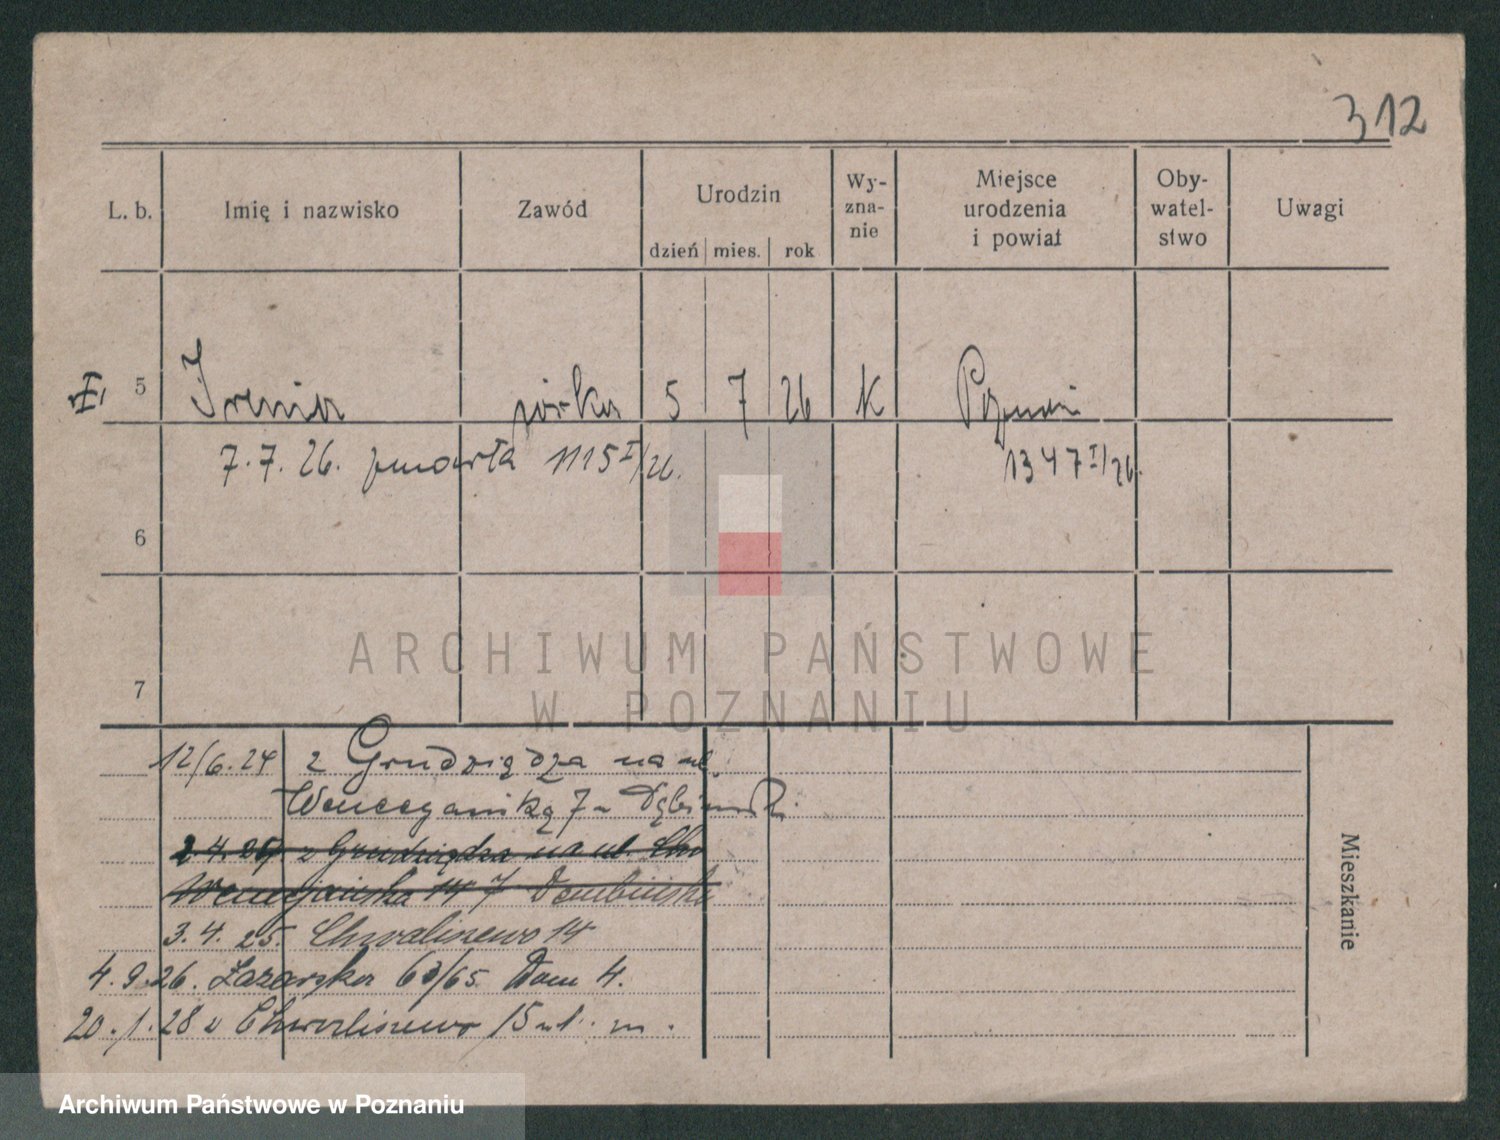 312
L. b. Imię i nazwisko Zawód Urodzin Wy-zna-nie Miejsce urodzenia i powiat Oby-watel-stwo Uwagi
dzień mies. rok
5 Irenia córka 5 7 26 K Poznań
7. 7. 26. zmarła 1115 I/26. 1347 I/26.
6
ARCHIWUM PAŃSTWOWE
7
W POZNANIU
12/6. 24 z Grudziądza na ul.
Wenecjańską 7
2. 4. 25 z Grudziądza na ul.
Wenecjańska 14 7 Dembińska
3. 4. 25. Chwaliszewo 14
4. 9. 26. Łazarska 63/65 Dom 4.
20. 1. 28 Chwaliszewo 15
Mieszkanie
Archiwum Państwowe w Poznaniu